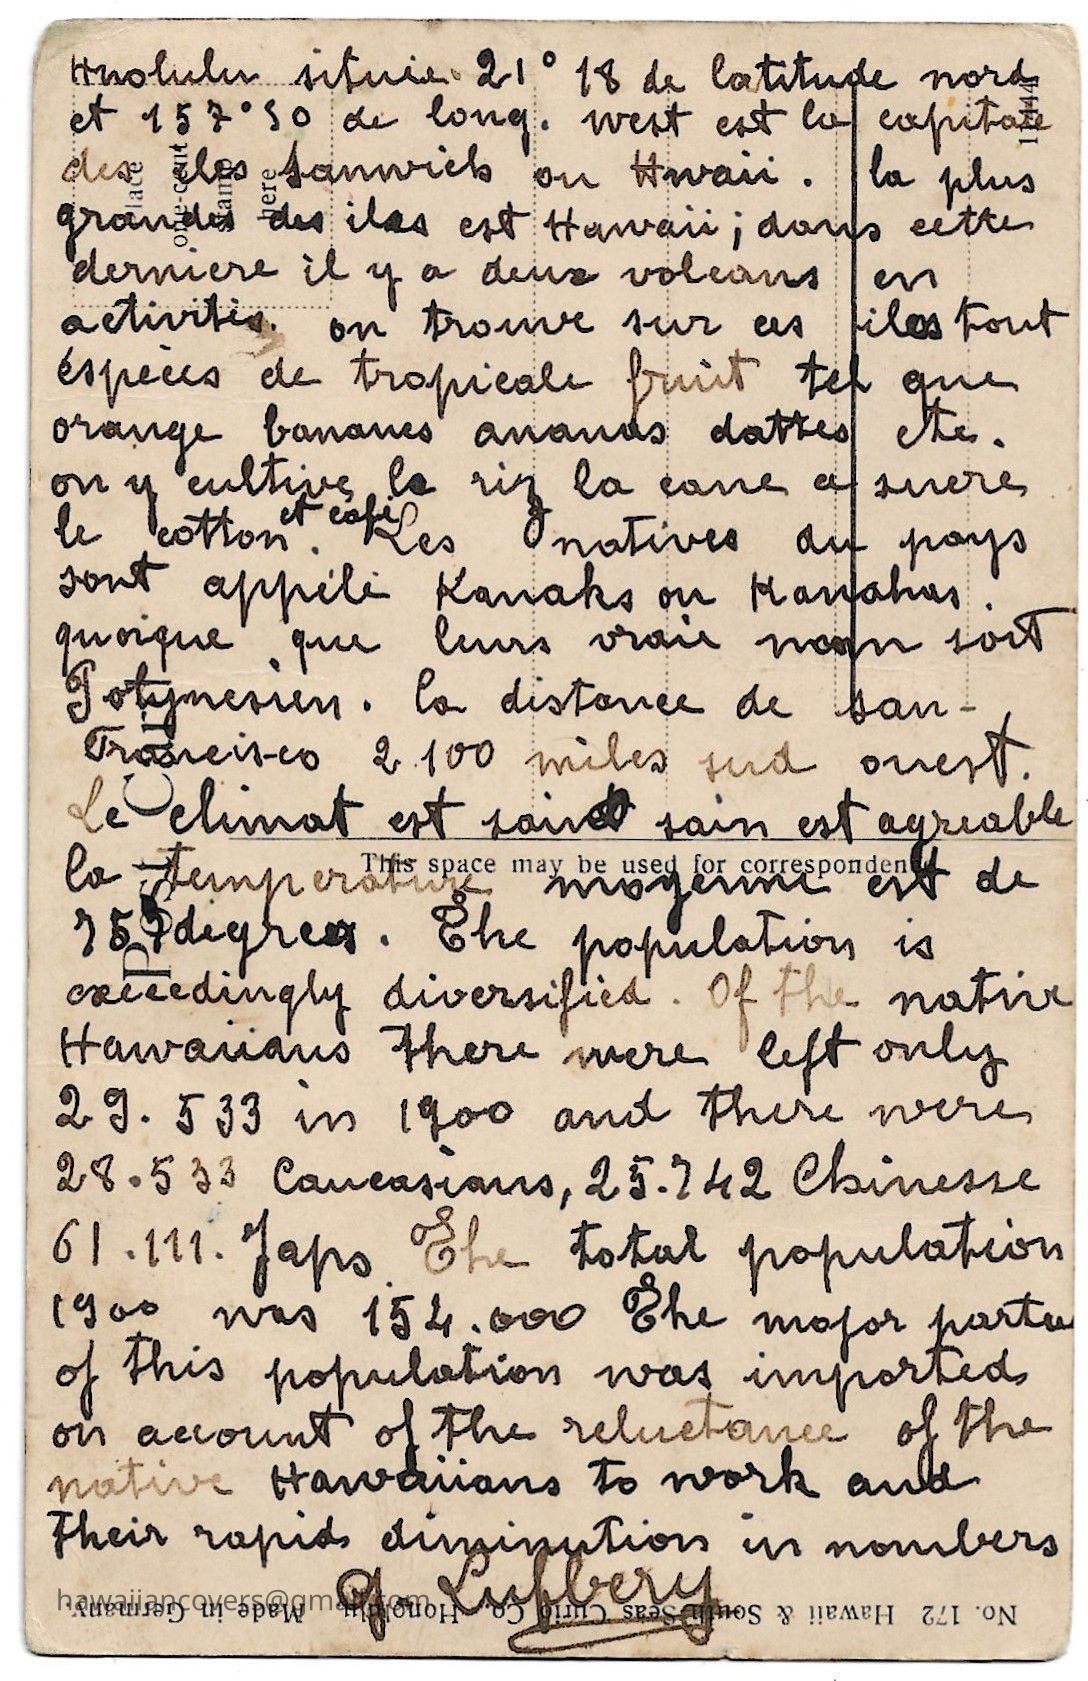 Hnolulu située 21° 18 de latitude nord
et 157°50 de long. west est la capitale
des iles Sanwich ou Hwaii. la plus
grandes des iles est Hawaii; dans cette
derniere il y a deux volcans en
activités. on trouve sur ces iles tout
éspèces de tropicale fruit tel que
orange bananes ananas dattes etc.
on y cultive le riz la cane a sucre
le cotton et café. Les natives du pays
sont appélé Kanaks ou Kanahas.
quoique que leurs vraie nom soit
Polynesien. la distance de san-
Francisco 2.100 miles sud ouest.
Le climat est sain est agreable
la temperature moyenne est de
75 degrees. The population is
exceedingly diversified. Of the native
Hawaiians there were left only
29.533 in 1900 and there were
28.533 Caucasians, 25.742 Chinesse
61.111. Japs. The total population
1900 was 154.000 The major parte
of this population was imported
on account of the reluctance of the
native Hawaiians to work and
their rapid diminution in nombers
G Lufbery
Place
one-cent
stamp
here
This space may be used for correspondence
No. 172 Hawaii & South Seas Curio Co., Honolulu. Made in Germany.
hawaiiancovers@gmail.com